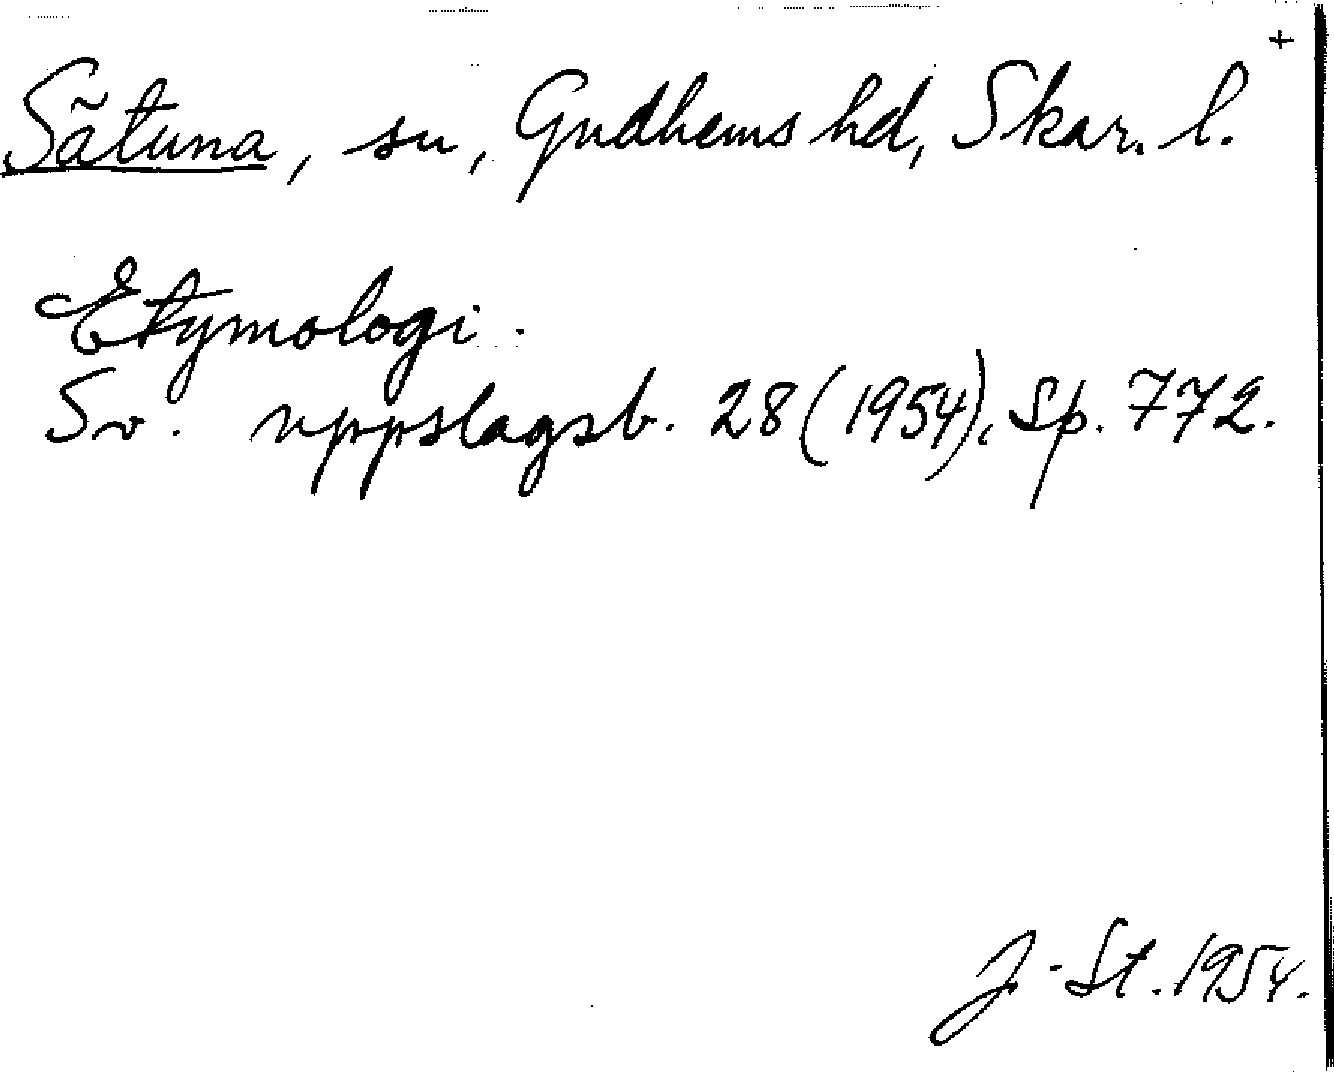 +
Sätuna, sn, Gudhems hd, Skar. l.
Etymologi.
Sv. uppslagsb. 28 (1954), Sp. 772.
J. St. 1954.